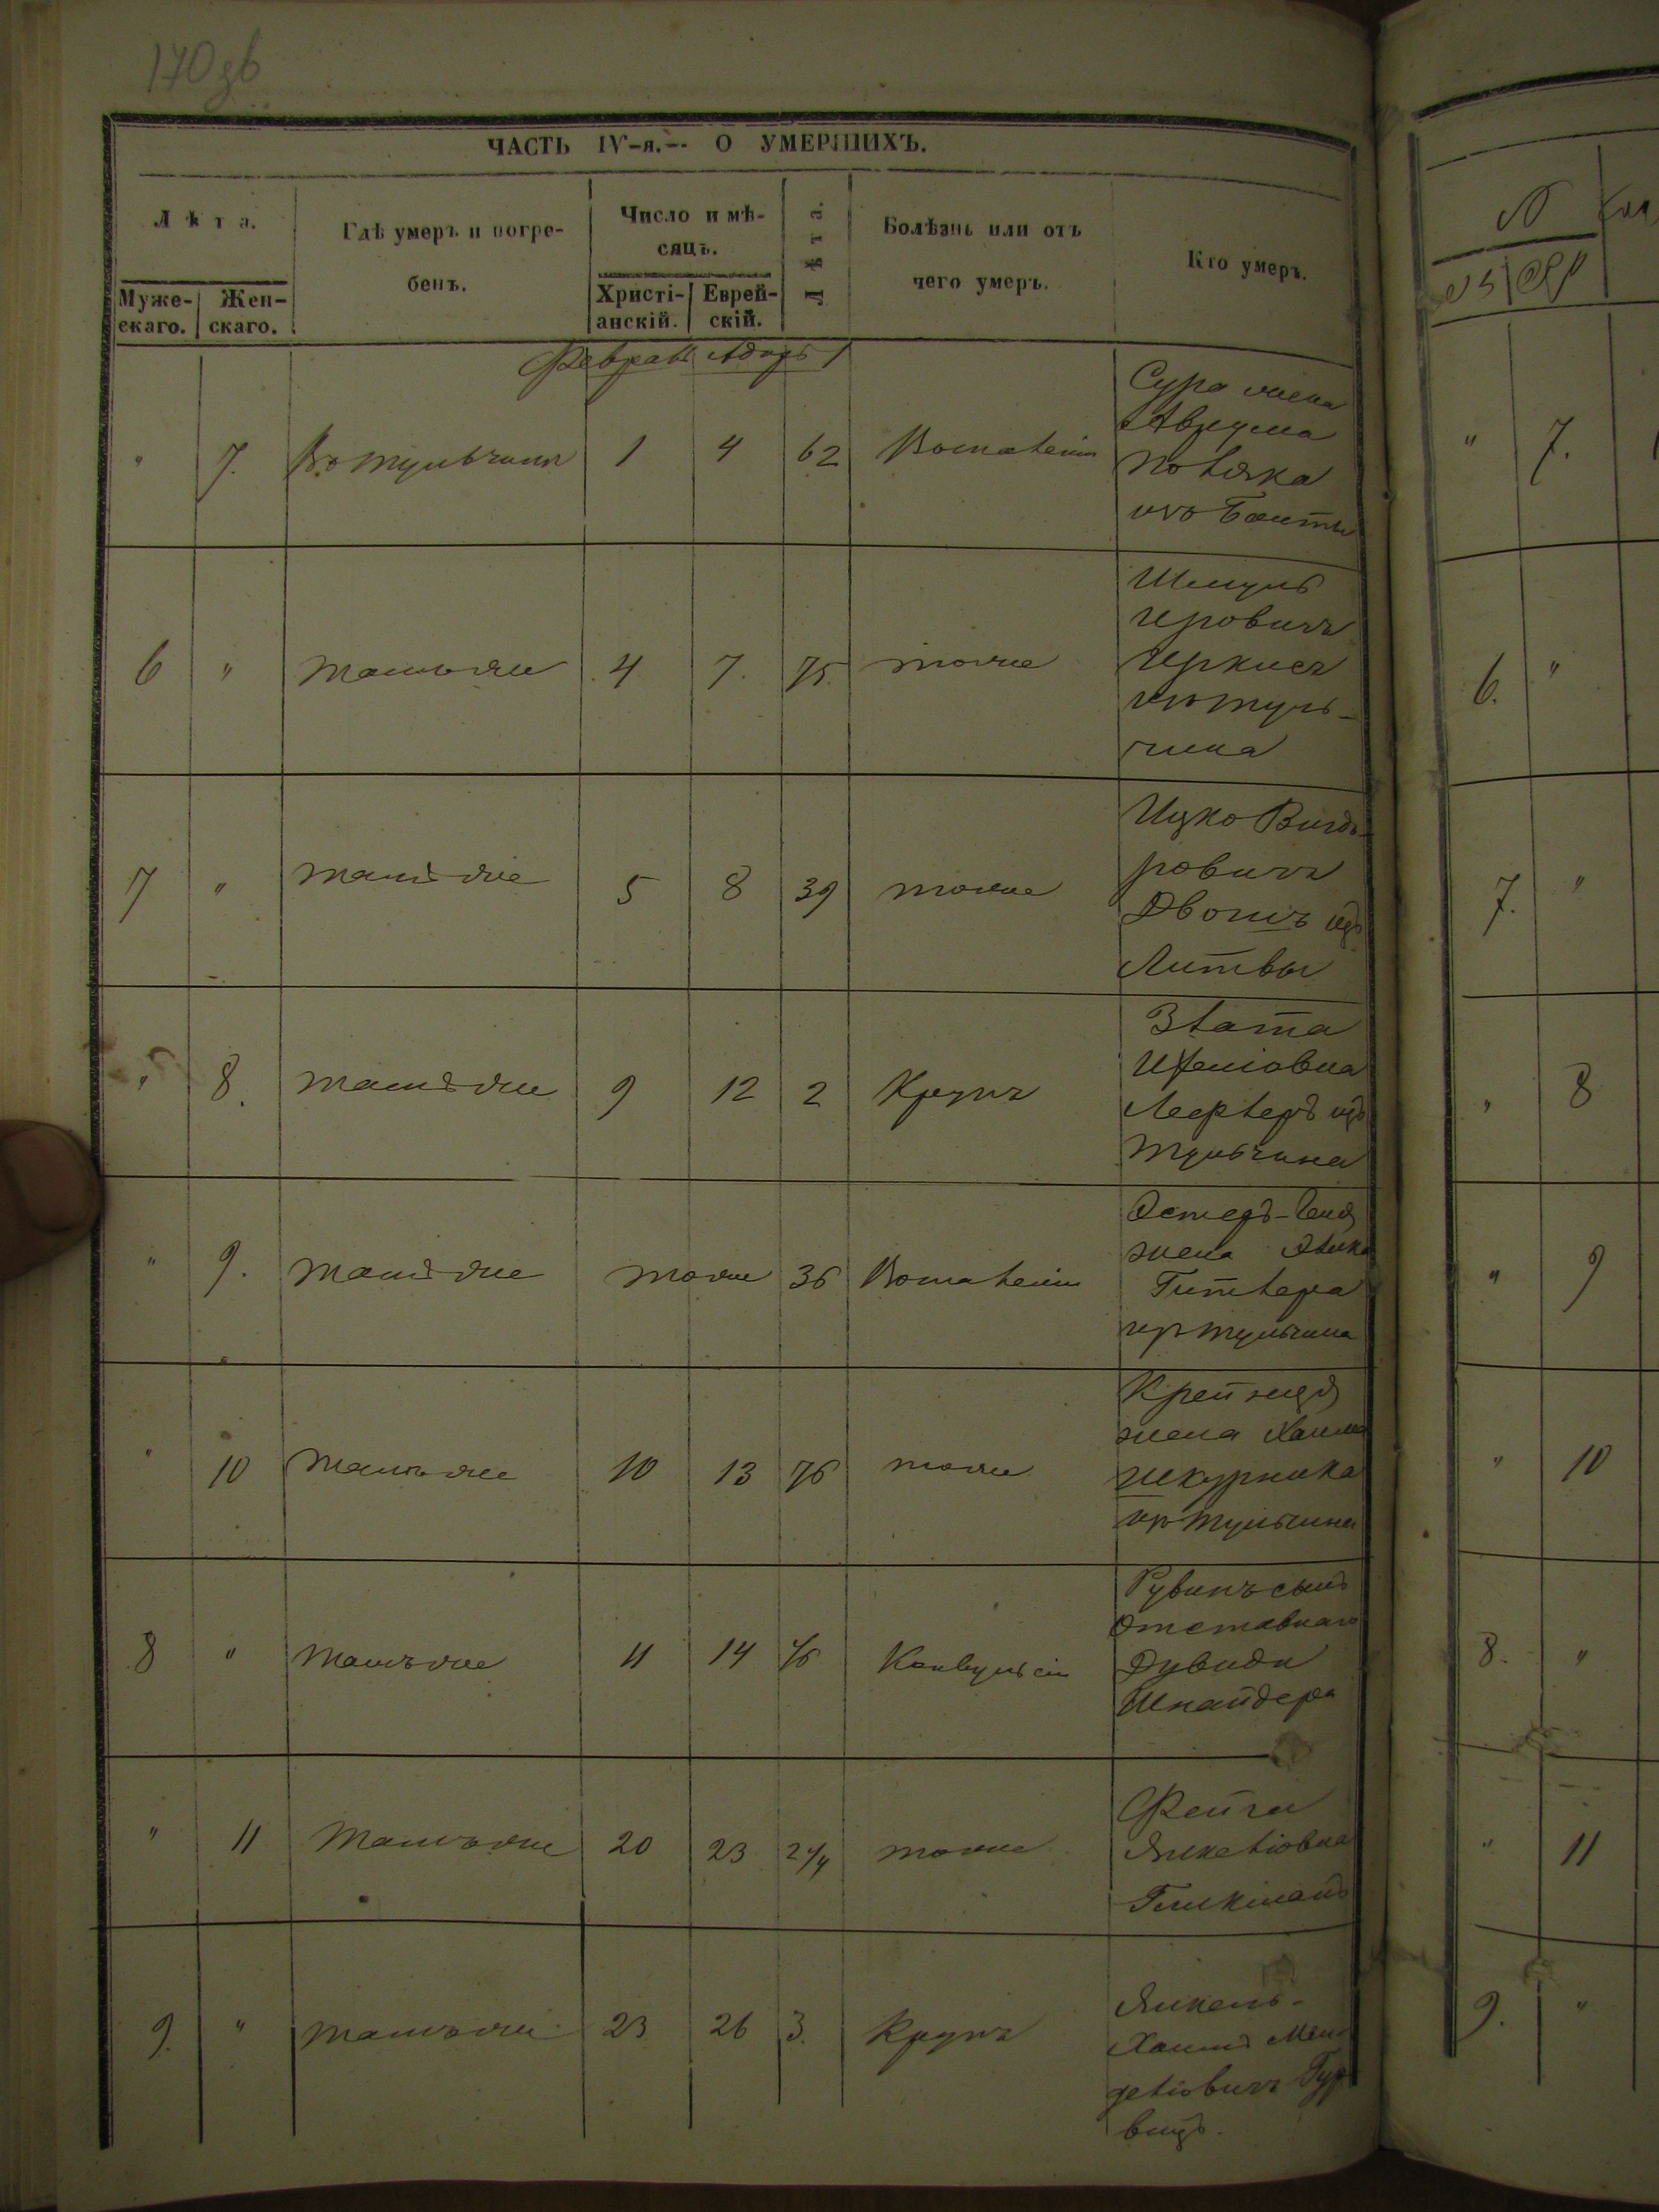 170 зв
ЧАСТЬ IV-я.-- О УМЕРШИХЪ.
Лѣта.
Муже-скаго.
Жен-скаго.
Гдѣ умеръ и погре-
бенъ.
Число и мѣ-
сяцъ.
Христі-анскій.
Еврей-скій.
Лѣта.
Болѣзнь или отъ
чего умеръ.
Кто умеръ.
Февраль Адаръ 1
" 7. Въ Тульчинѣ 1 4 62 Воспаленія
Сура жена
Аврума
Поляка
изъ
6 " тамъ же 4 7. 75 тоже
Шмуль
изъ Туль-
чина
7 " тамъ же 5 8 39 тоже
Ицко Вигдо-
ровичъ
Двоисъ изъ
Литвы
" 8. тамъ же 9 12 2 Крупъ
Злата
Лефлеръ изъ
Тульчина
" 9. тамъ же тоже 36 Воспаленія
Эстеръ-
жена
Гитлера
изъ Тульчина
" 10 тамъ же 10 13 76 тоже
Крейнця
жена Хаима
Шкурника
изъ Тульчина
8 " тамъ же 11 14 Конвульсіи
Рувинъ сынъ
Отставнаго
Дувида
Шнайдера
" 11 тамъ же 20 23 2/4 тоже
Фейга
Янкеліовна
9. " тамъ же 23 26 3. Крупъ
Янкель-
Хаимъ Мен-
деліовичъ Гур-
вицъ.
" 7.
6. "
7. "
" 8
" 9
" 10
8. "
" 11
9. "